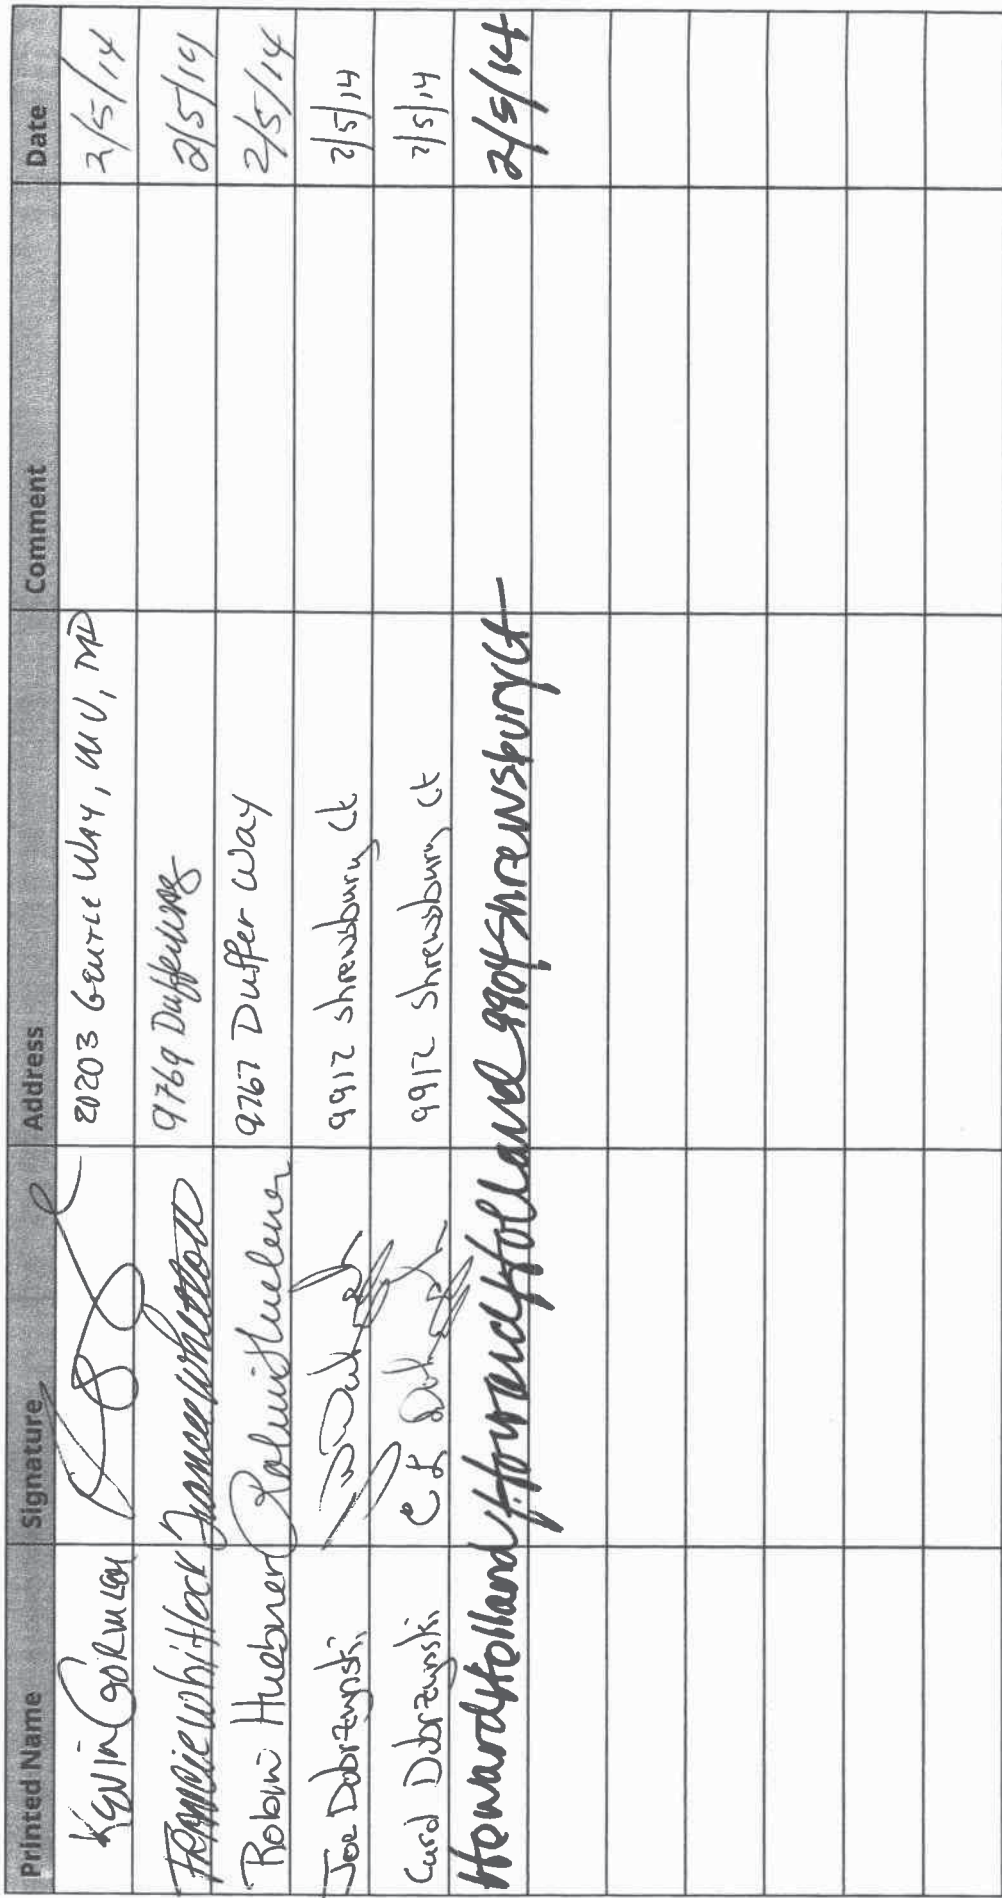 Printed Name Signature Address Comment Date
Kevin Gormley 20203 Gentle Way, MV, MD 2/5/14
Francie Whitlock 9769 Duffer Way 2/5/14
Robin Huebner Robin Huebner 9767 Duffer Way 2/5/14
Joe Dobrzynski 9912 Shrewsbury Ct 2/5/14
Carol Dobrzynski 9912 Shrewsbury Ct 2/5/14
Howard Holland Howard Holland 9904 Shrewsbury Ct 2/5/14